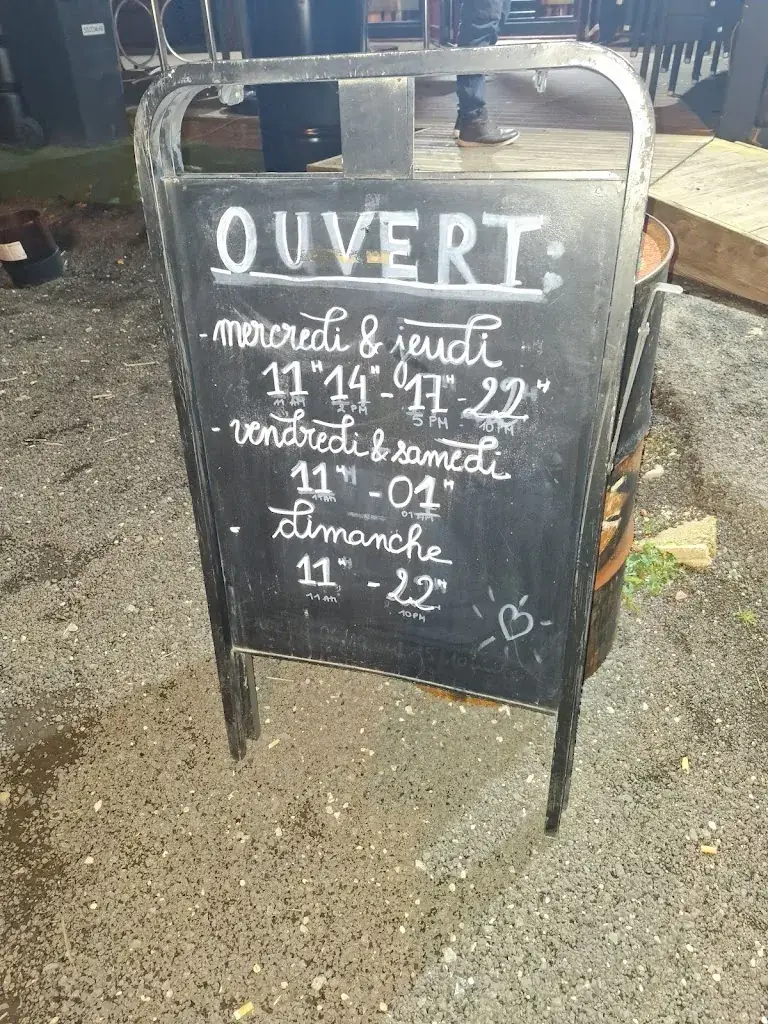 OUVERT:
- mercredi & jeudi
11H 14H - 17H - 22H
11 AM 2 PM 5 PM 10 PM
- vendredi & samedi
11H - 01H
11 AM 01 AM
- dimanche
11H - 22H
11 AM 10 PM